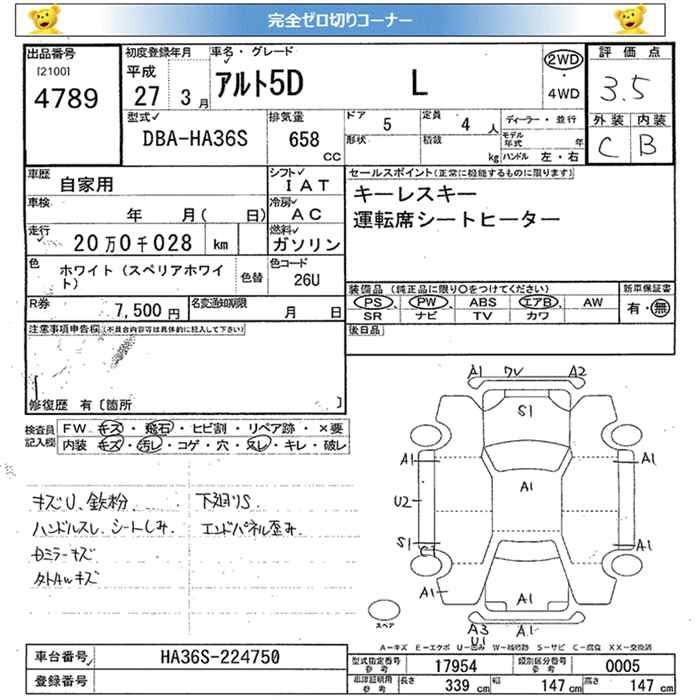 完全ゼロ切りコーナー
出品番号
[2100]
4789
初度登録年月
平成
27 3月
車名・グレード
アルト5D L
2WD
・
4WD
評価点
3.5
外装 内装
C B
型式
DBA-HA36S
排気量
658
CC
ドア 5
形状
定員 4 人
積載 kg
ディーラー・並行
モデル年式 年
ハンドル 左・右
車歴
自家用
車検
年 月( 日)
走行
20万0千028 km
色
ホワイト (スペリアホワイト)
色替
シフト
IAT
冷房
AC
燃料
ガソリン
色コード
26U
R券
7,500 円
名変通知期限
月 日
セールスポイント(正常に機能するものに限ります)
キーレスキー
運転席シートヒーター
装備品 (純正品に限り○をつけてください)
PS PW ABS エアB AW
SR ナビ TV カワ
新車保証書
有・無
後日品
注意事項申告欄(不具合内容等は具体的に記入して下さい)
修復歴 有〔箇所 〕
検査員
記入欄
FW キズ・飛石・ヒビ割・リペア跡・×要
内装 キズ・汚レ・コゲ・穴・スレ・キレ・破レ
キズU、鉄粉、 下廻りS
ハンドルスレ、シートしみ、 エンドパネル歪み、
Cミラーキズ
タカトAwキズ
A1 ワレ A2
S1
A1 A1
A1
U2
S1
C
A1
A1
A1
A3
U1
A1
スペア
A-キズ E-エクボ U-凹み W-補修跡 S-サビ C-腐食 XX-交換済
車台番号
HA36S-224750
登録番号
型式指定番号
参考
17954
類別区分番号
参考
0005
車庫証明用
参考
長さ 339 cm
幅 147 cm
高さ 147 cm